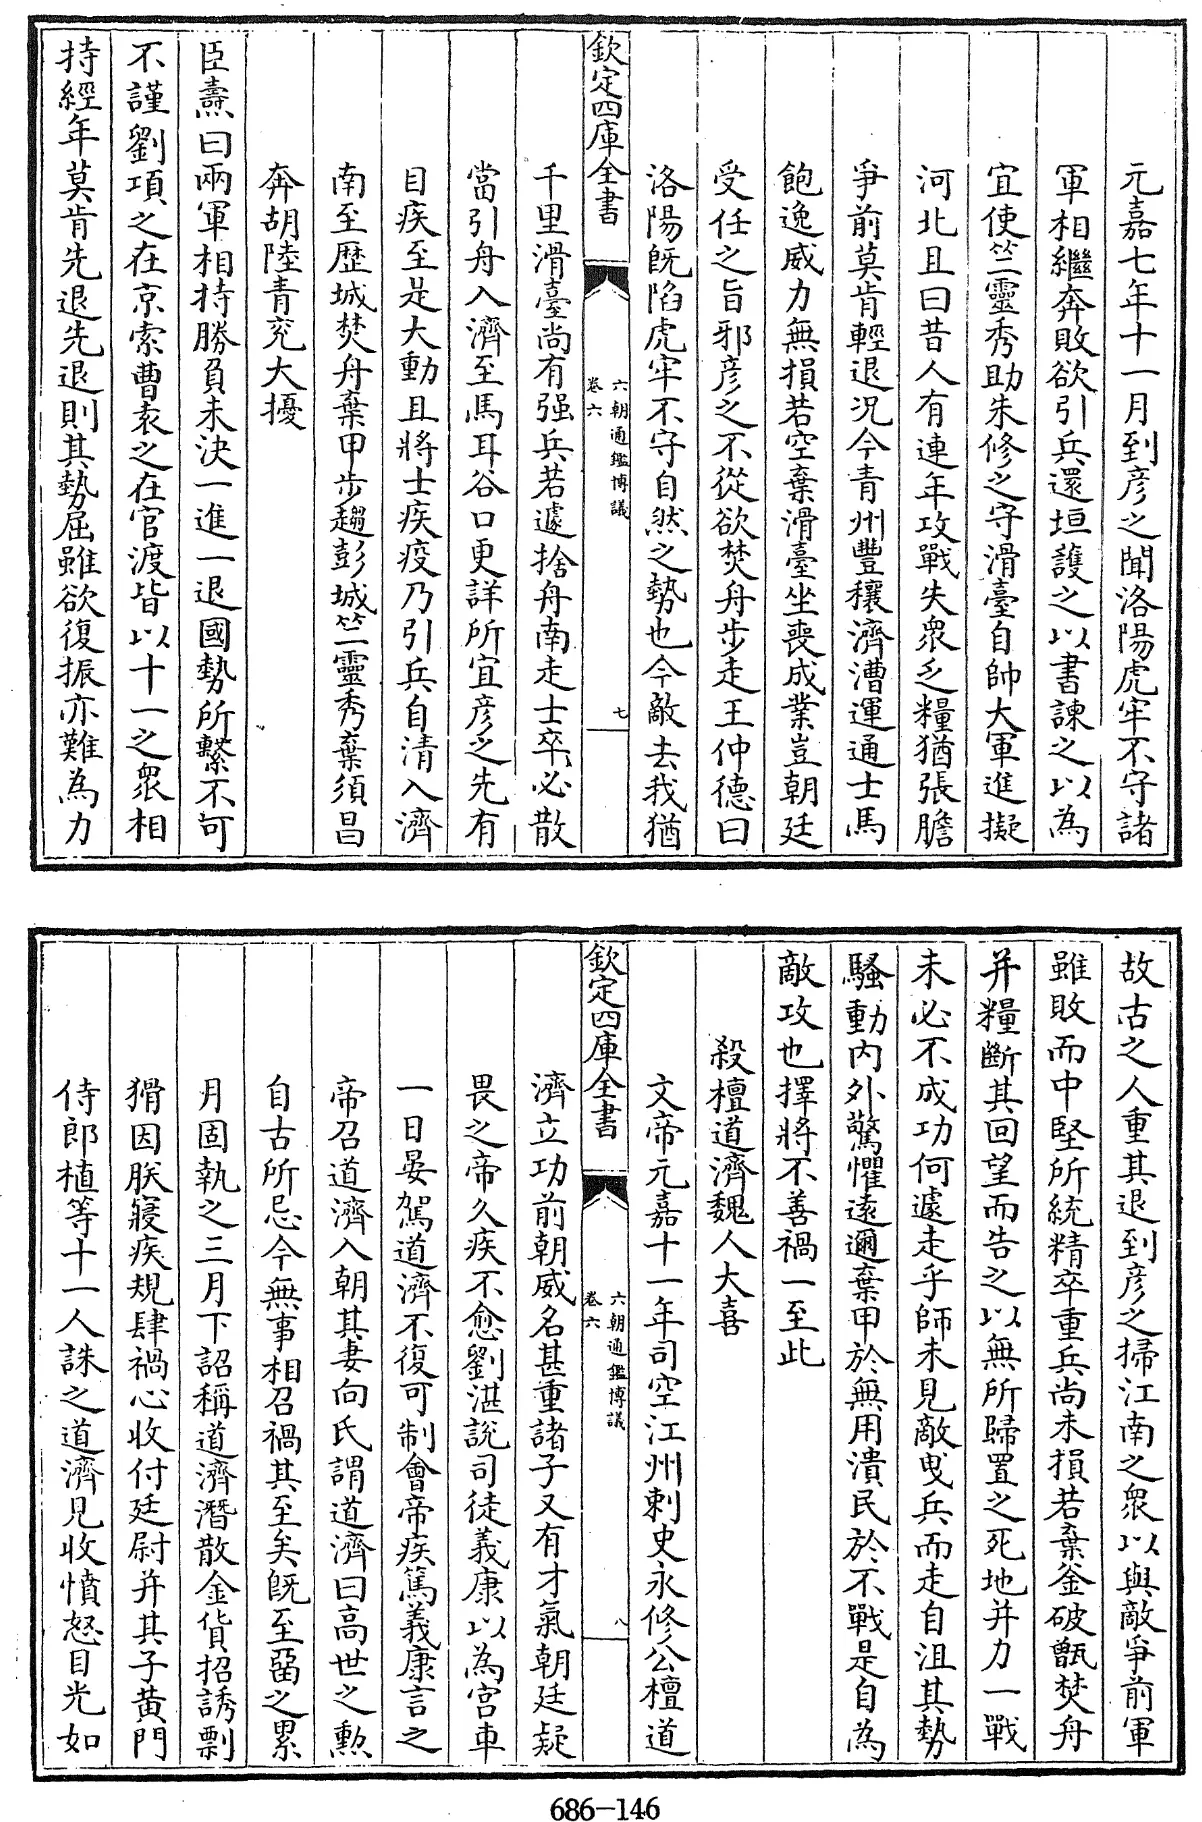 元嘉七年十一月到彦之聞洛陽虎牢不守諸
軍相繼奔敗欲引兵還垣護之以書諫之以為
宜使竺靈秀助朱修之守滑臺自帥大軍進擬
河北且曰昔人有連年攻戰失衆乏糧猶張膽
爭前莫肯輕退況今青州豐穰濟漕運通士馬
飽逸威力無損若空棄滑臺坐喪成業豈朝廷
受任之旨邪彦之不從欲焚舟步走王仲德曰
洛陽既陷虎牢不守自然之勢也今敵去我猶
欽定四庫全書
六朝通鑑博議
卷六
七
千里滑臺尚有强兵若遽捨舟南走士卒必散
當引舟入濟至馬耳谷口更詳所宜彦之先有
目疾至是大動且將士疾疫乃引兵自清入濟
南至歷城焚舟棄甲步趨彭城竺靈秀棄須昌
奔胡陸青兖大擾
臣燾曰兩軍相持勝負未決一進一退國勢所繫不可
不謹劉項之在京索曹袁之在官渡皆以十一之衆相
持經年莫肯先退先退則其勢屈雖欲復振亦難為力
故古之人重其退到彦之掃江南之衆以與敵爭前軍
雖敗而中堅所統精卒重兵尚未損若棄釜破甑焚舟
并糧斷其回望而告之以無所歸置之死地并力一戰
未必不成功何遽走乎師未見敵曳兵而走自沮其勢
騷動内外驚懼遠邇棄甲於無用潰民於不戰是自為
敵攻也擇將不善禍一至此
殺檀道濟魏人大喜
文帝元嘉十一年司空江州刺史永修公檀道
欽定四庫全書
六朝通鑑博議
卷六
八
濟立功前朝威名甚重諸子又有才氣朝廷疑
畏之帝久疾不愈劉湛説司徒義康以為宫車
一日晏駕道濟不復可制會帝疾篤義康言之
帝召道濟入朝其妻向氏謂道濟曰高世之勲
自古所忌今無事相召禍其至矣既至留之累
月固執之三月下詔稱道濟潛散金貨招誘剽
猾因朕寢疾規肆禍心收付廷尉并其子黄門
侍郎植等十一人誅之道濟見收憤怒目光如
686-146